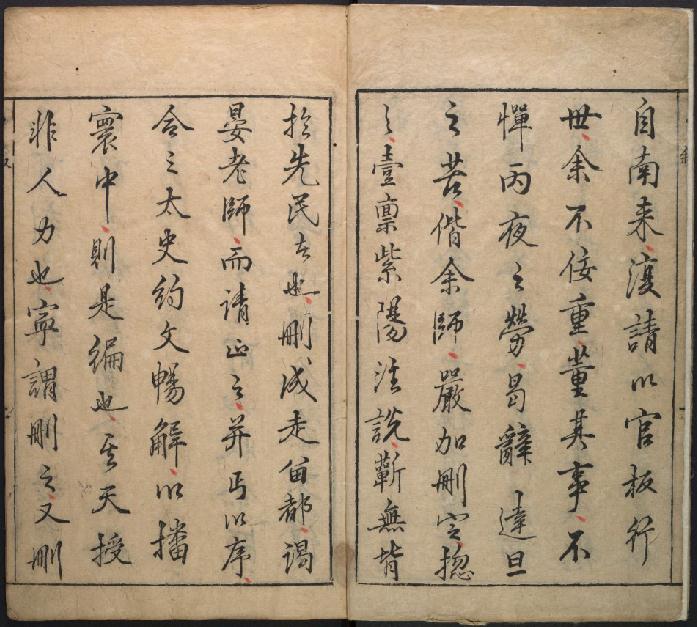 自南来復請以官板行
世余不佞重董其事不
憚丙夜之勞曷辭達旦
之苦偕余師嚴加刪定揔
之壹稟紫陽注說蘄無背
於先民者也刪成走留都謁
晏老師而請正之并丐以序
令之太史約文暢解以播
寰中則是編也其天授
非人力也寧謂刪之又刪